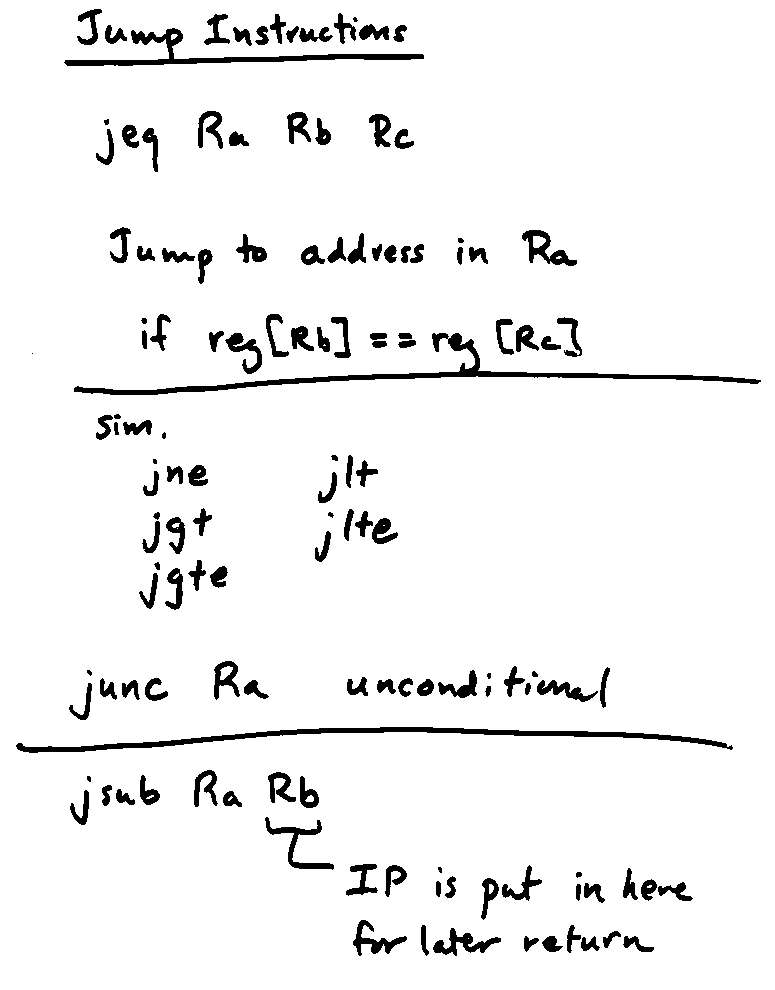 Jump Instructions
jeq Ra Rb Rc
Jump to address in Ra
if reg[Rb] == reg[Rc]
sim.
jne jlt
jgt jlte
jgte
junc Ra unconditional
jsub Ra Rb
IP is put in here
for later return